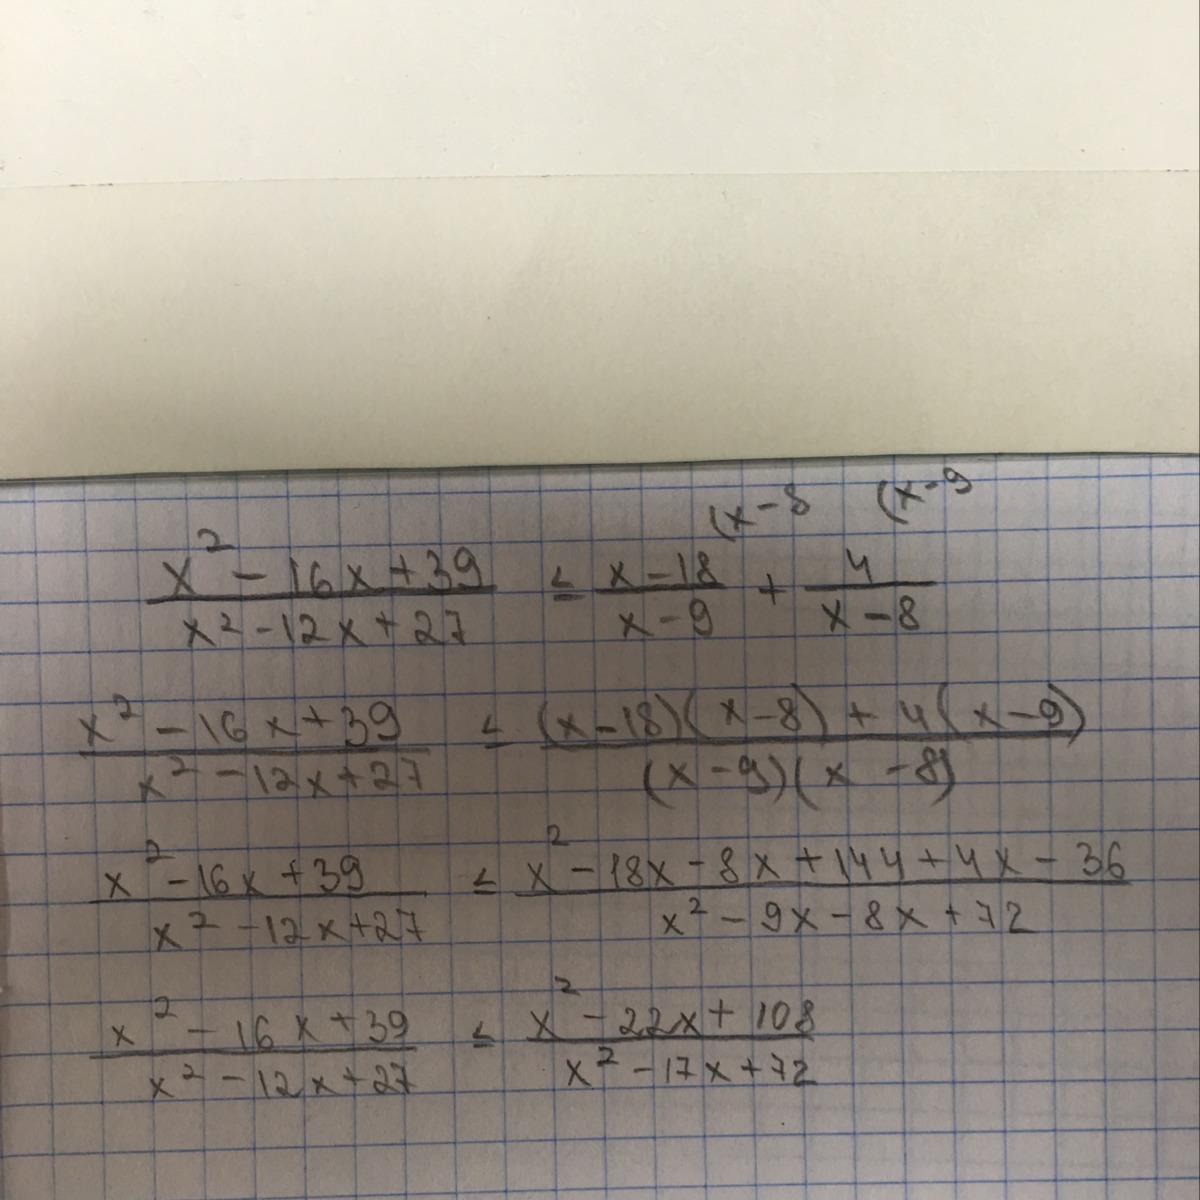 (x-8 (x-9
x² - 16x + 39 / x² - 12x + 27 ≤ x - 18 / x - 9 + 4 / x - 8
x² - 16x + 39 / x² - 12x + 27 ≤ (x - 18)(x - 8) + 4(x - 9) / (x - 9)(x - 8)
x² - 16x + 39 / x² - 12x + 27 ≤ x² - 18x - 8x + 144 + 4x - 36 / x² - 9x - 8x + 72
x² - 16x + 39 / x² - 12x + 27 ≤ x² - 22x + 108 / x² - 17x + 72